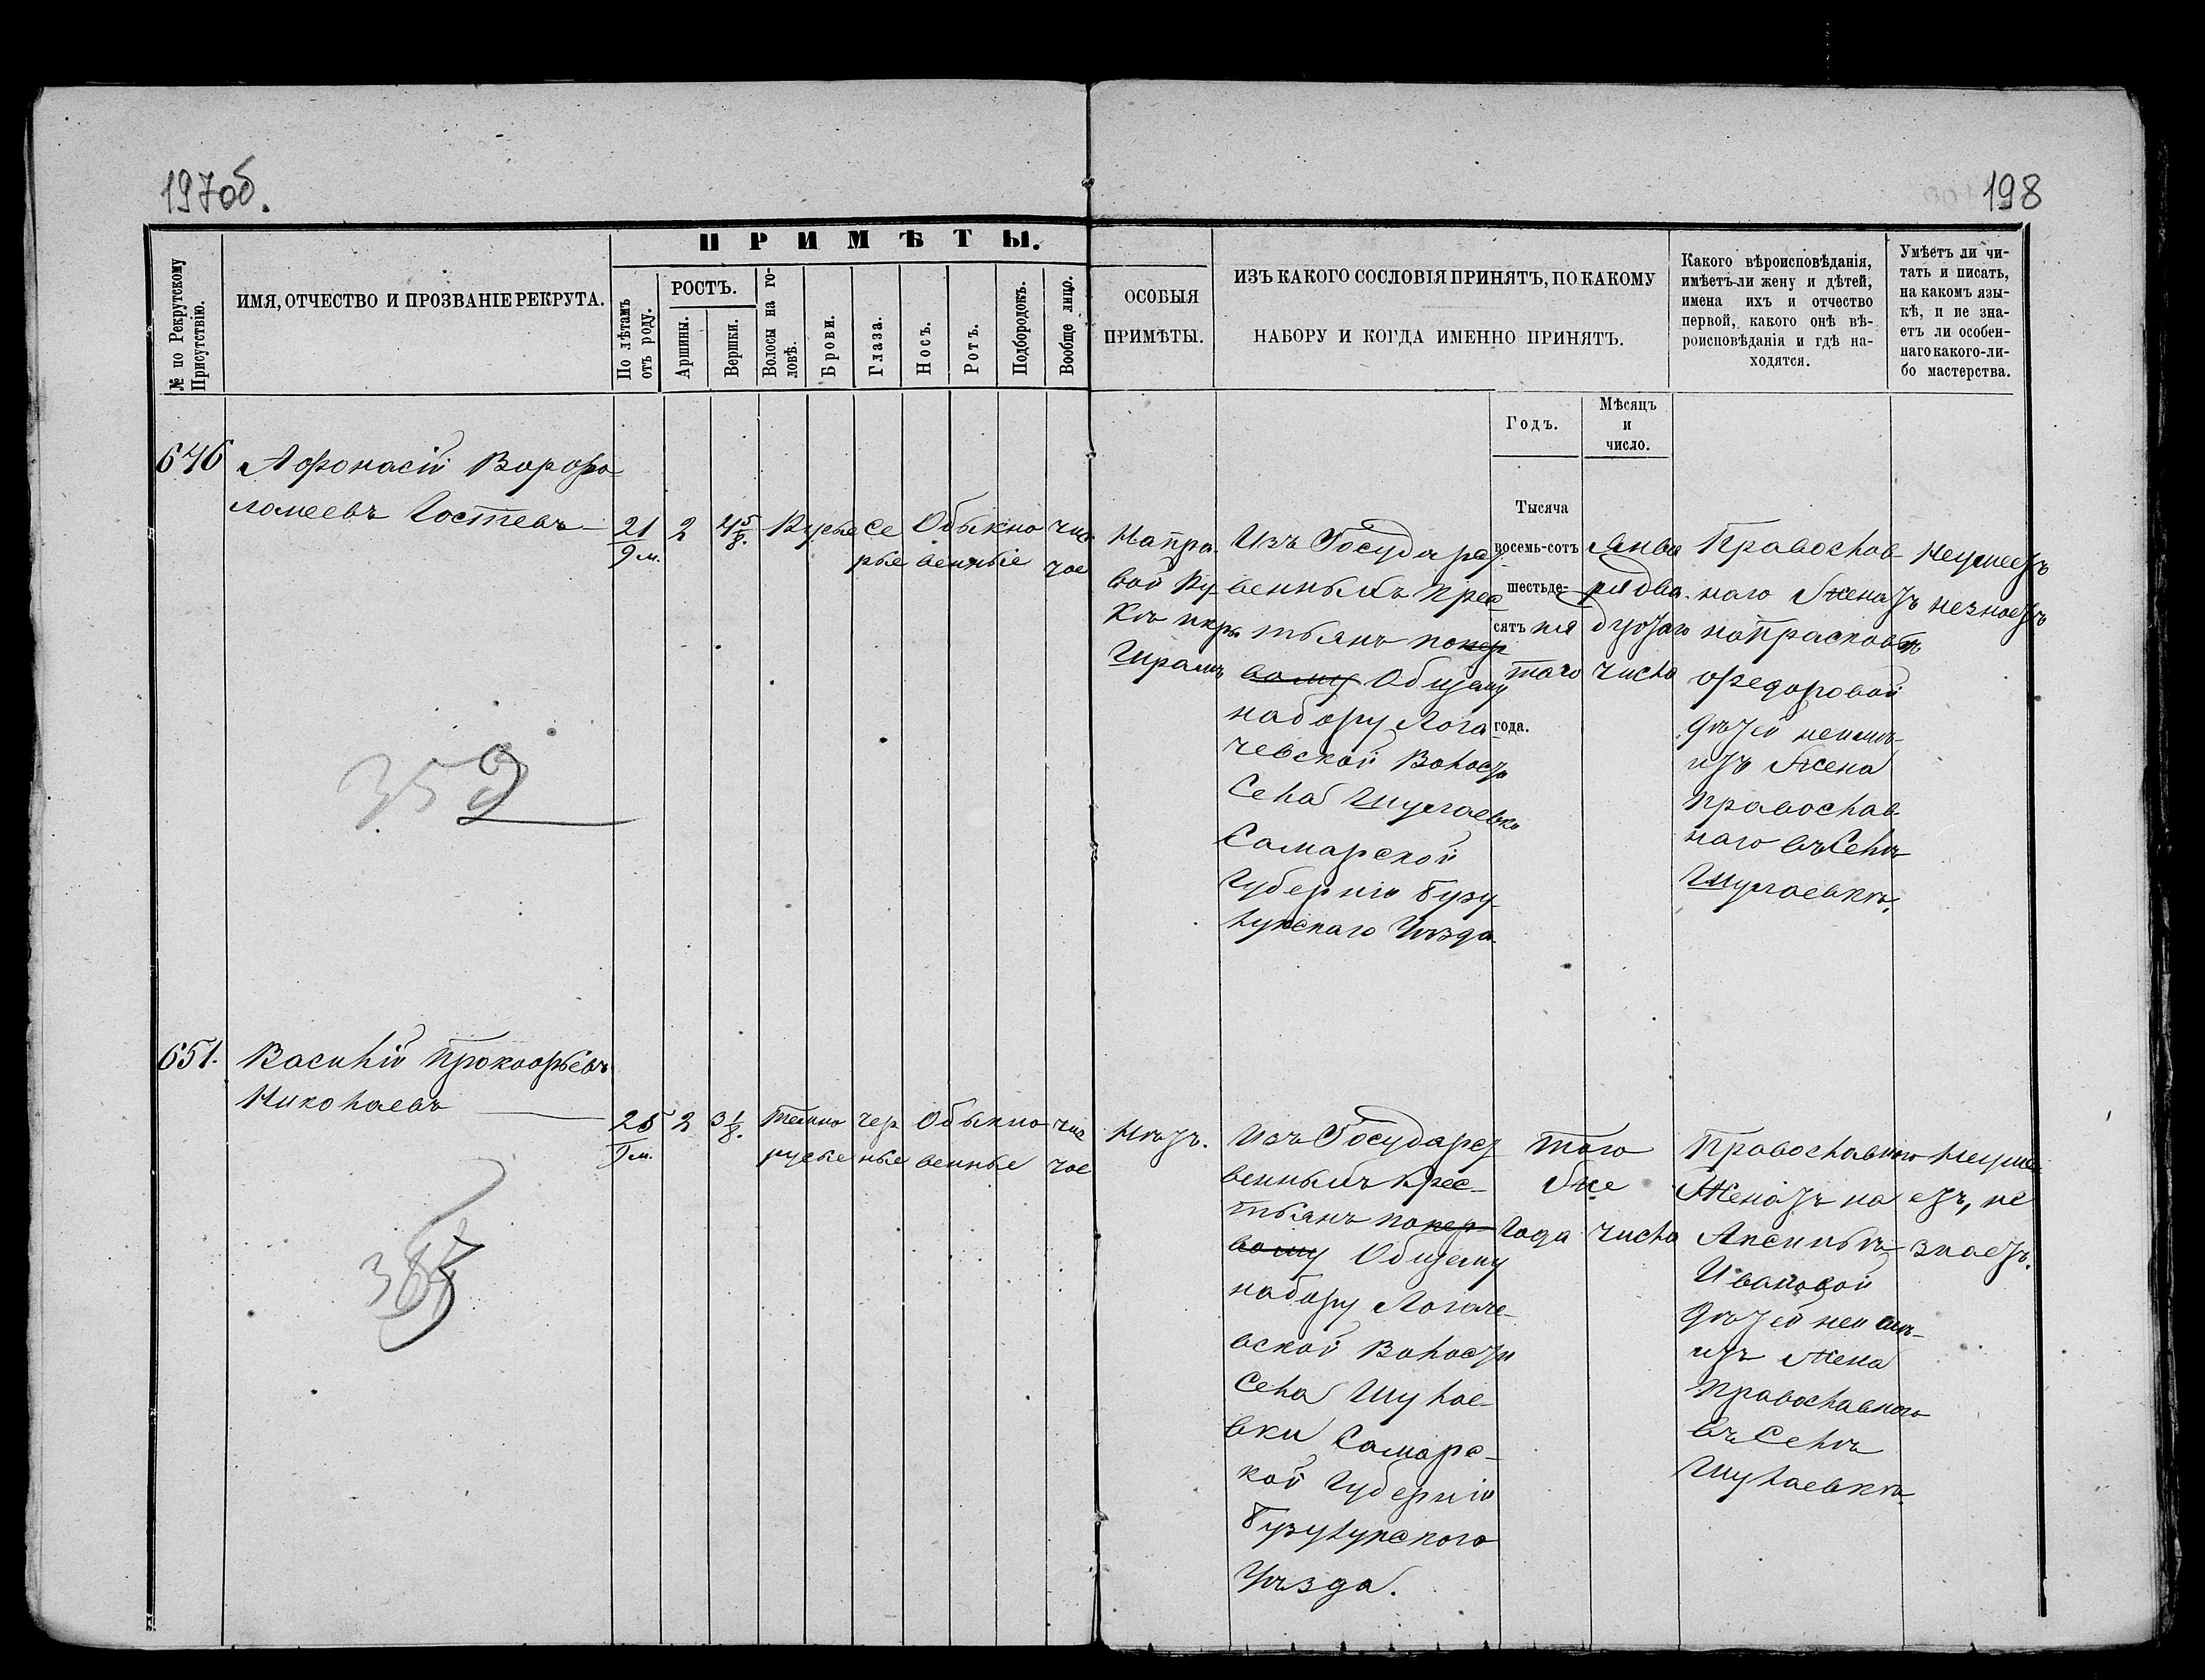 197об.
198
ПРИМѢТЫ.
№ по Рекрутскому Присутствію.
ИМЯ, ОТЧЕСТВО И ПРОЗВАНІЕ РЕКРУТА.
По лѣтамъ отъ роду.
РОСТЪ.
Аршины.
Вершки.
Волосы на головѣ.
Брови.
Глаза.
Носъ.
Ротъ.
Подбородокъ.
Вообще лицо.
ОСОБЫЯ
ПРИМѢТЫ.
ИЗЪ КАКОГО СОСЛОВІЯ ПРИНЯТЪ, ПО КАКОМУ
НАБОРУ И КОГДА ИМЕННО ПРИНЯТЪ.
Какого вѣроисповѣданія,
имѣетъ-ли жену и дѣтей,
имена ихъ и отчество
первой, какого онѣ вѣ-
роисповѣданія и гдѣ на-
ходятся.
Умѣетъ ли чи-
тать и писать,
на какомъ язы-
кѣ, и не зна-
етъ ли особен-
наго какого-ли-
бо мастерства.
Годъ.
Мѣсяцъ
и
число.
646
Афонасій Варфо
ломеевъ Гостевъ
21
9 м.
2
4 5/8.
Русые
Се
рые
Обыкно
венные
чис
тое
На пра-
вой ру
къ
Изъ Государст
венныхъ Крес
тьянъ по пер
вому Общему
набору Лога
чевской Волости
Села
Самарской
Губерніи Бузу
лукскаго Уѣзда
Тысяча
восемь-сотъ
шестьде-
сятъ пя
того
года.
Янва
ря два
дцатаго
числа
Православ
наго Женатъ
на Прасковьѣ
Федоровой
дѣтей неимѣ-
итъ Жена
Православ
наго въ Селѣ
неумеетъ
незноетъ
359
651.
Василій Прокофьевъ
Николаевъ
25
9 м.
2
3 1/8.
Темно
русые
чер
ные
Обыкно
венные
чис
тое
Нѣтъ.
Изъ Государст
венныхъ Крес-
тьянъ по пер
вому Общему
набору Логаче-
вской Волости
Села Шулае-
вки Самарс-
кой Губерніи
Бузулукского
Уѣзда.
того
же
Года
числа
Православного
Женатъ на
Аксиньѣ
Ивановой
дѣтей неимѣ-
итъ Жена
Православного
въ Селѣ
Шулаевкѣ
Неуме
етъ, не
знаетъ.